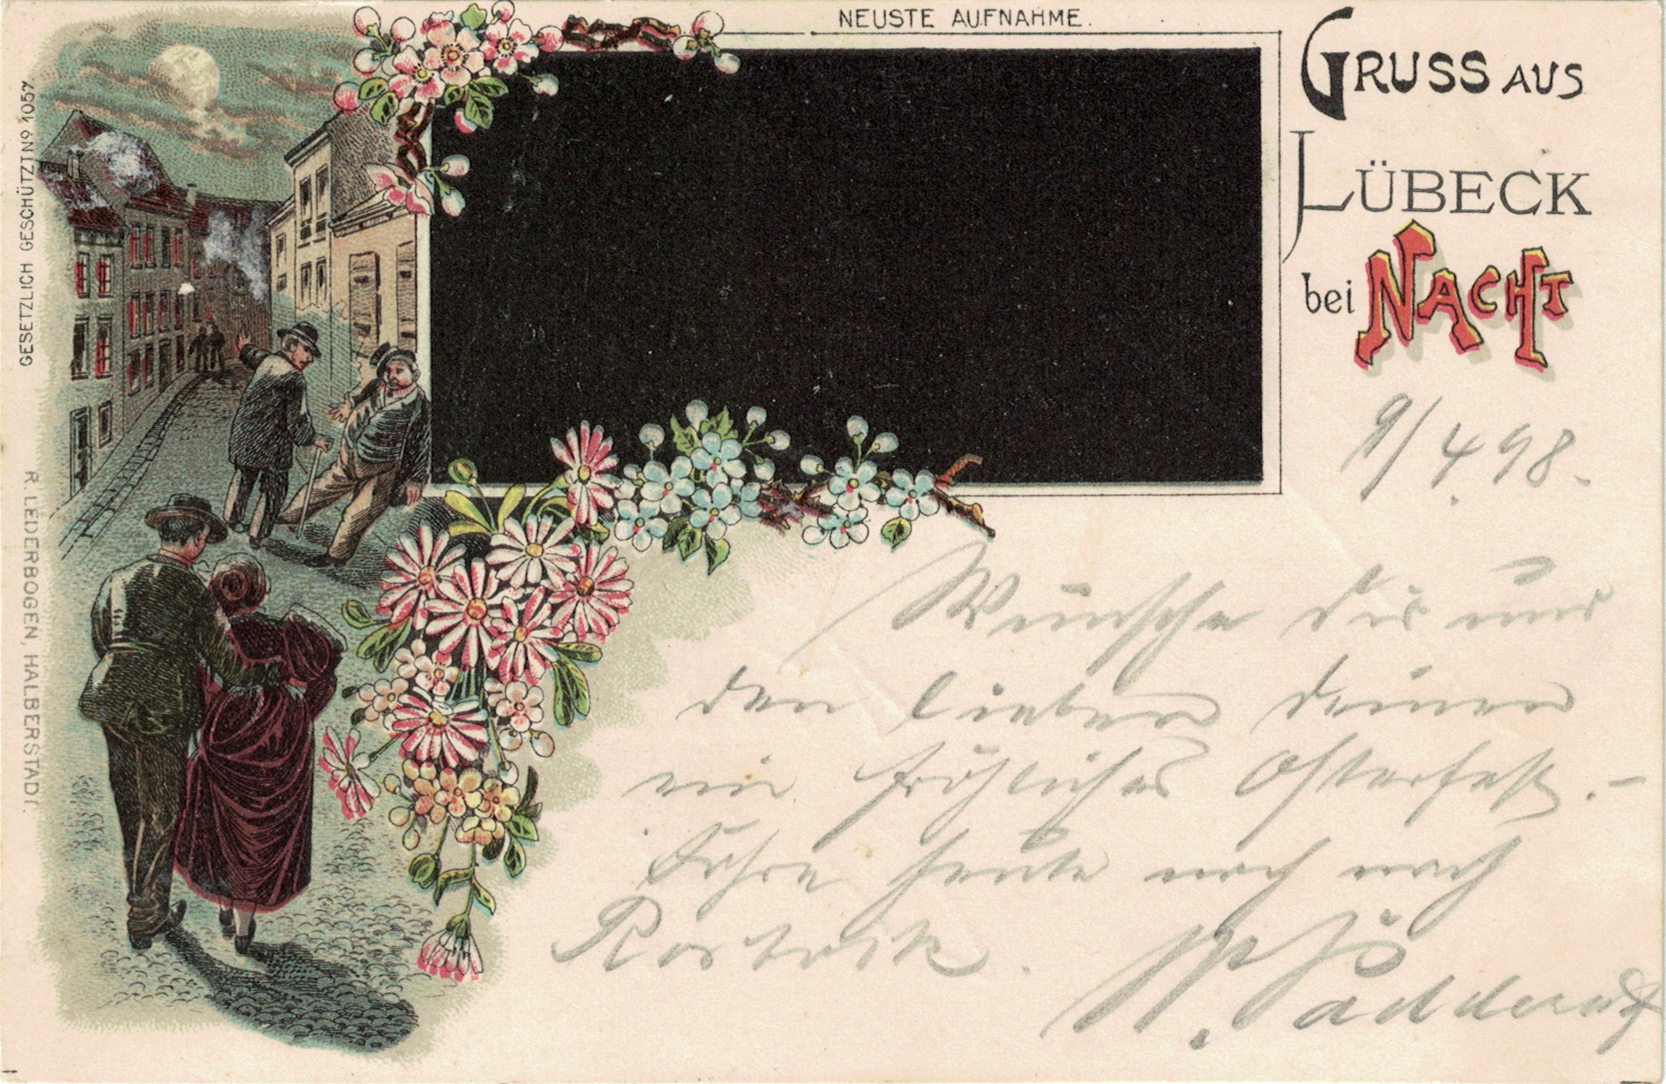 NEUSTE AUFNAHME.
GRUSS AUS
LÜBECK
bei NACHT
GESETZLICH GESCHÜTZT No 1057.
R. LEDERBOGEN, HALBERSTADT.
9/4.98.
Wünsche Dir und
den lieben Deinen
ein fröhliches Osterfest. –
Fahre heute noch nach
Rostock.